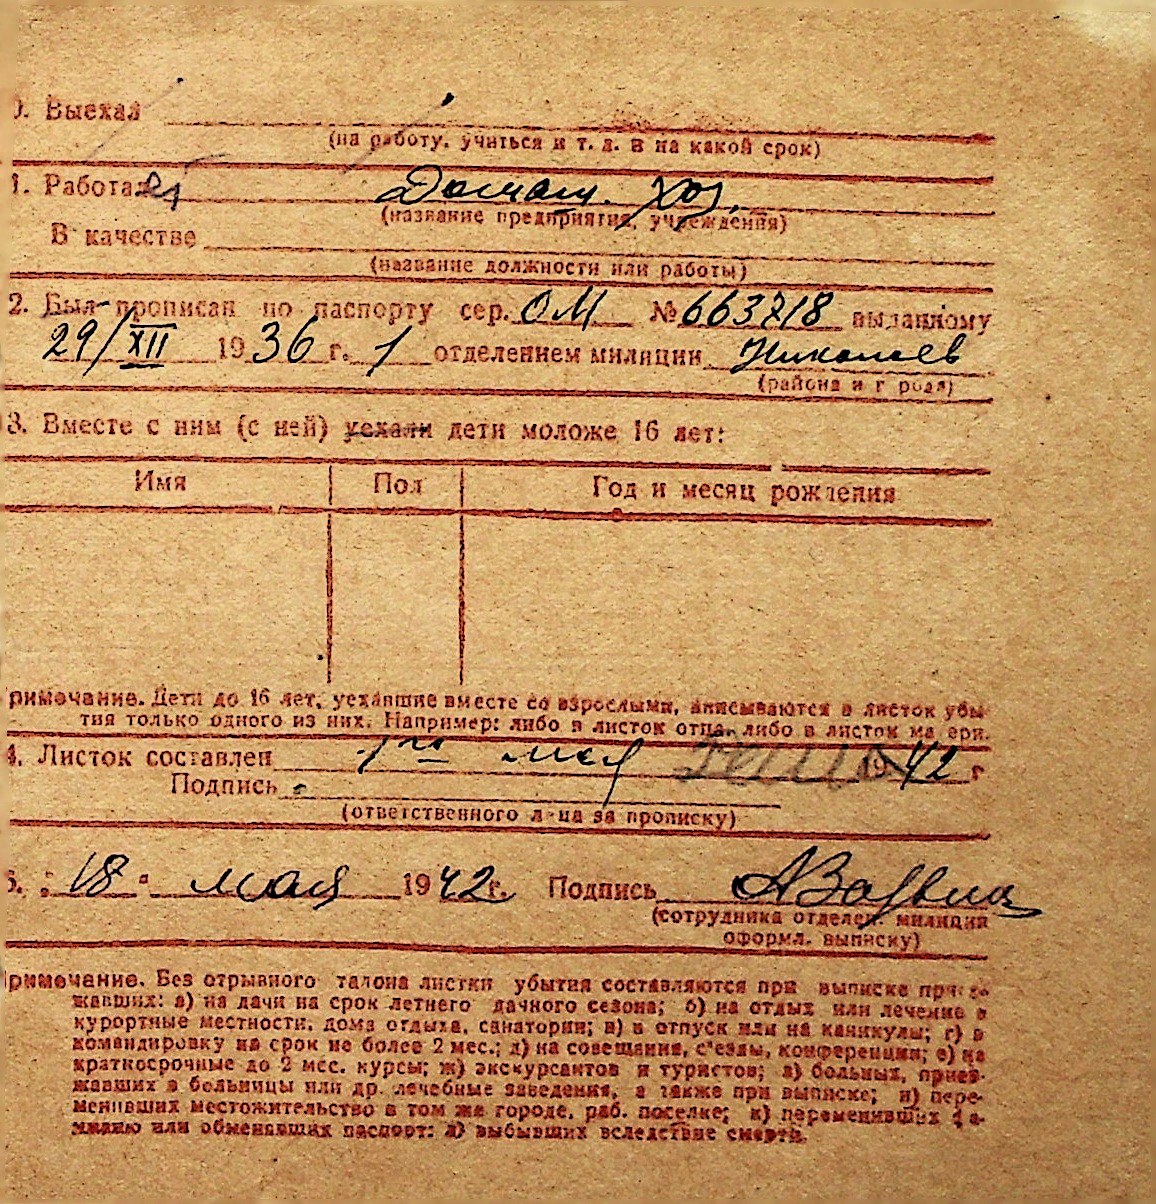 0. Выехал
(на работу, учиться и т. д. и на какой срок)
1. Работает Домаш. хоз.
(название предприятия, учреждения)
В качестве
(название должности или работы)
2. Был прописан по паспорту сер. ОМ № 663718 выданному
29/XII 1936 г. 1 отделением милиции Николаев
(района и города)
3. Вместе с ним (с ней) уехали дети моложе 16 лет:
Имя Пол Год и месяц рождения
римечание. Дети до 16 лет, уехавшие вместе со взрослыми, вписываются в листок убы-
тия только одного из них. Например: либо в листок отца, либо в листок матери.
4. Листок составлен мая 1942 г
Подпись
(ответственного лица за прописку)
5. "18" мая 1942 г. Подпись
(сотрудника отделен. милиции
оформл. выписку)
римечание. Без отрывного талона листки убытия составляются при выписке приез-
жавших: а) на дачи на срок летнего дачного сезона; б) на отдых или лечение в
курортные местности, дома отдыха, санатории; в) в отпуск или на каникулы; г) в
командировку на срок не более 2 мес.; д) на совещания, с'езды, конференции; е) на
краткосрочные до 2 мес. курсы; ж) экскурсантов и туристов; з) больных, приез-
жавших в больницы или др. лечебные заведения, а также при выписке; и) пере-
менивших местожительство в том же городе, раб. поселке; к) переменивших фа-
милию или обменявших паспорт; л) выбывших вследствие смерти.